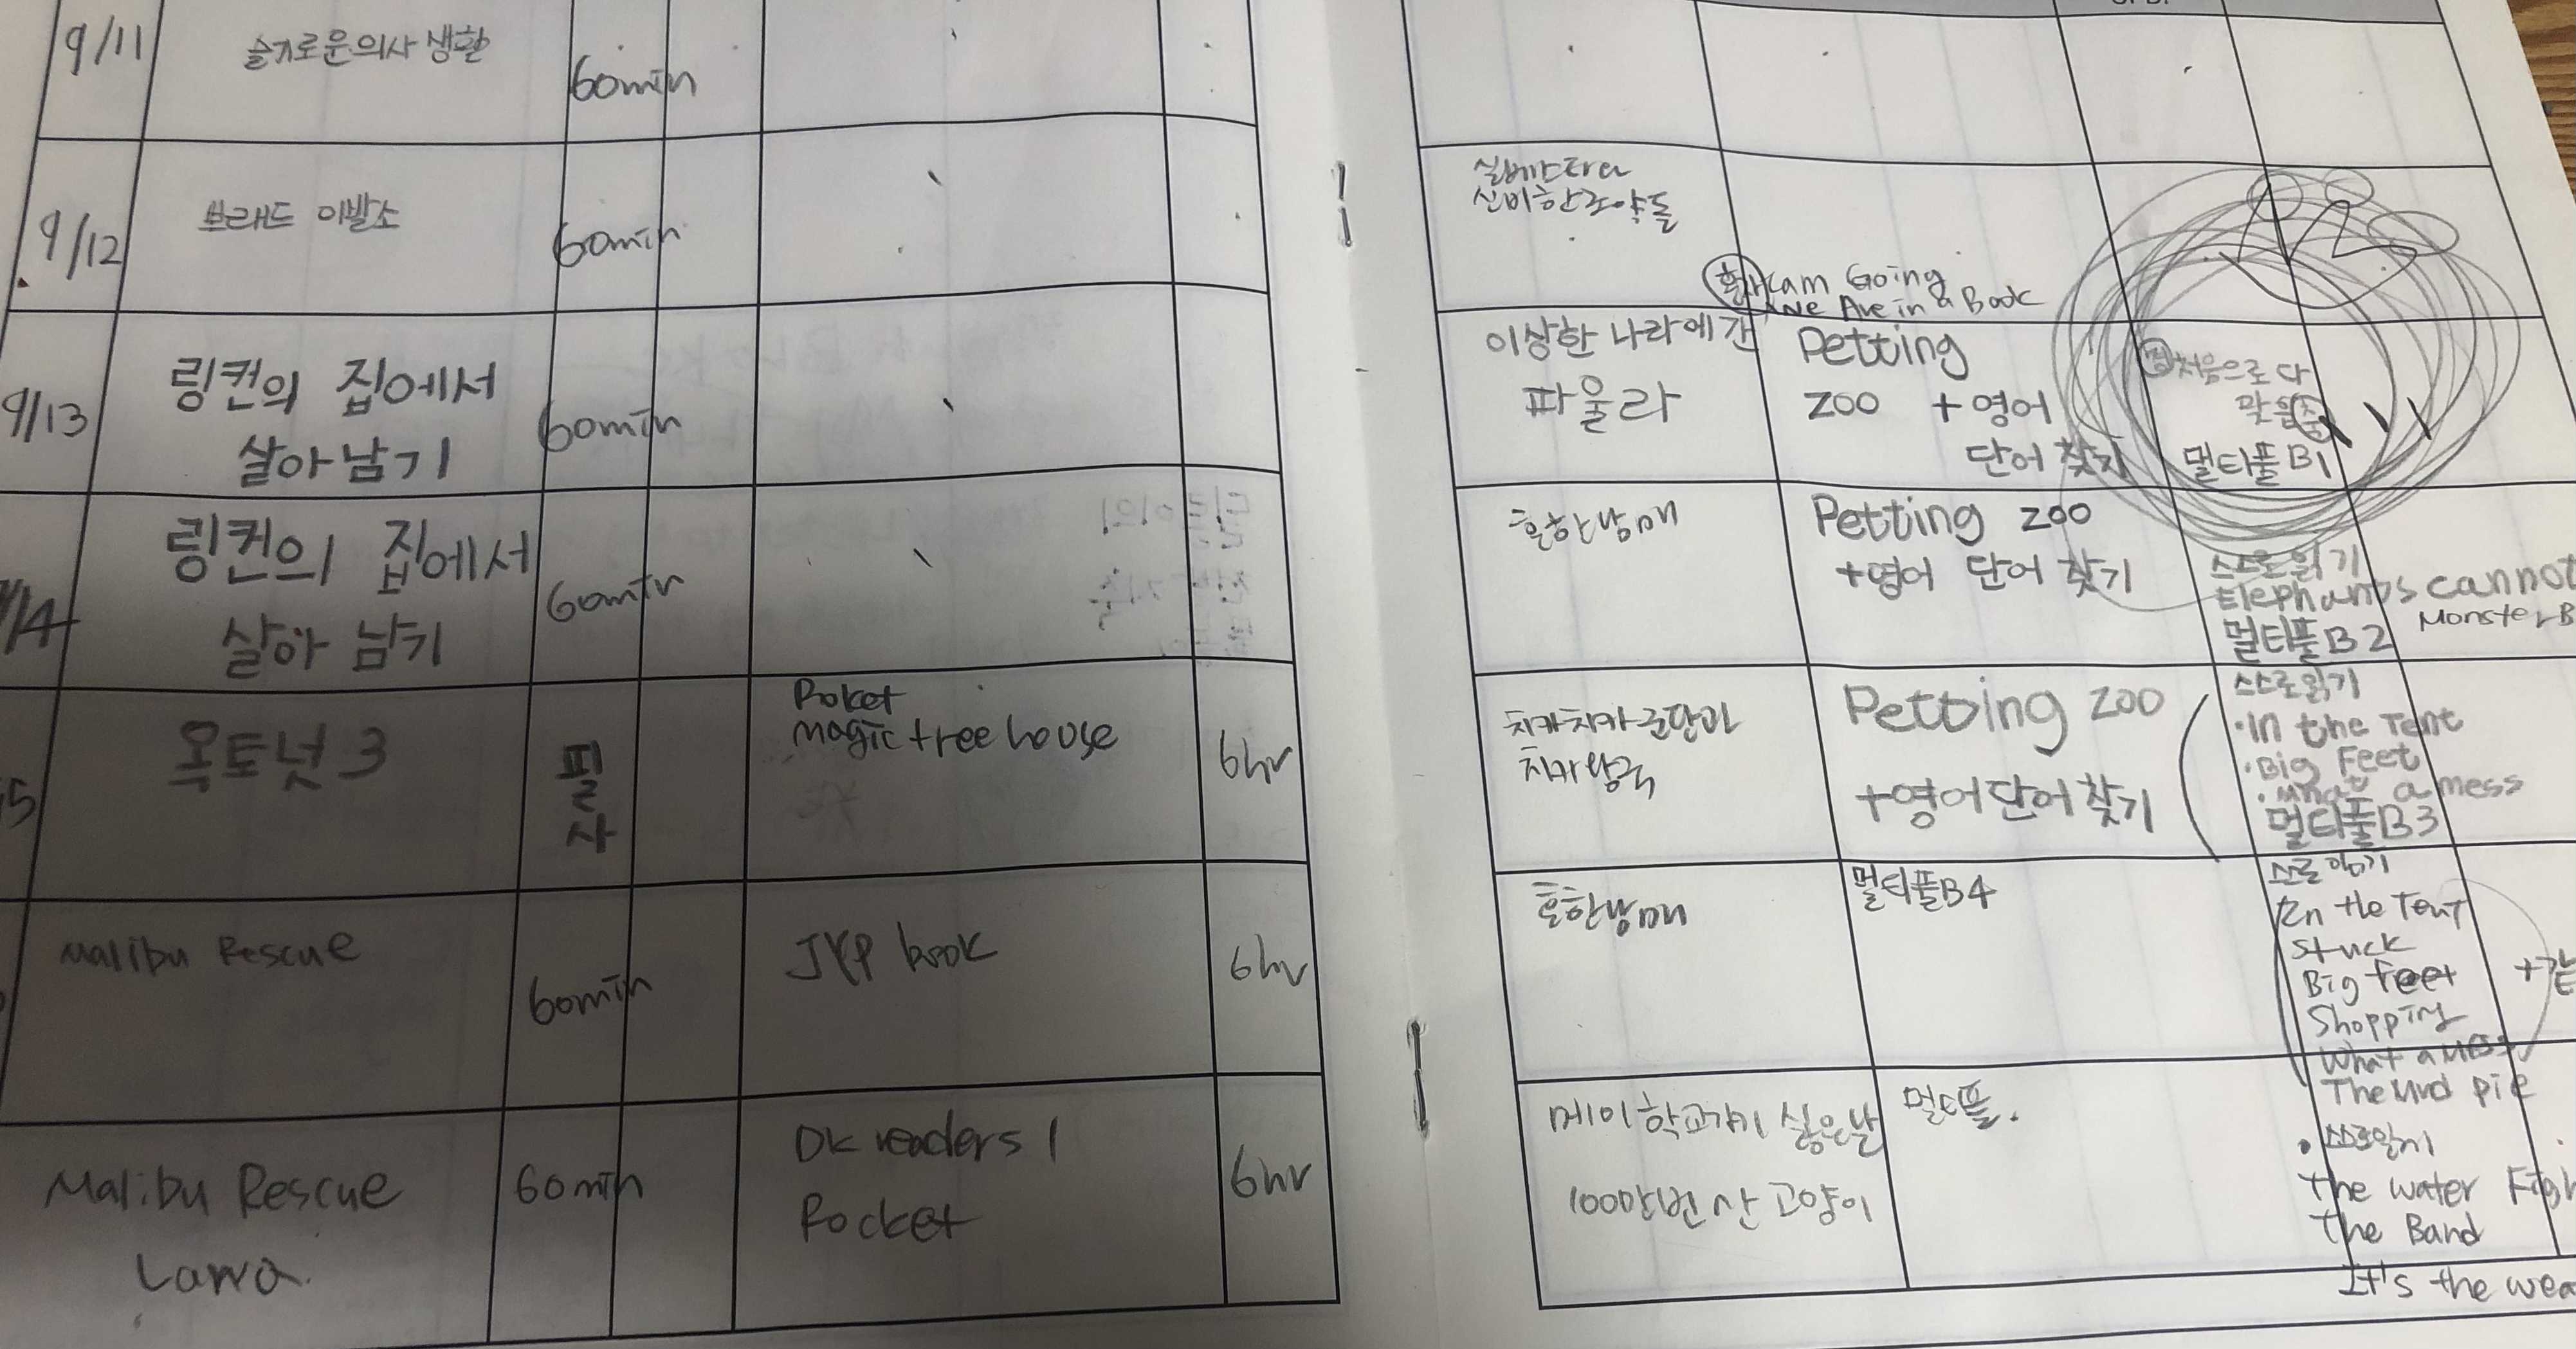 9/11
슬기로운의사생활
60min
9/12
브래드 이발소
60min
9/13
링컨의 집에서
살아남기
60min
링컨의 집에서
살아 남기
60min
옥토넛 3
필
사
magic tree house
6hr
Malibu Rescue
60min
JYP book
6hr
Malibu Rescue
60min
DK readers 1
Rocket
6hr
실베스타와
신비한조약돌
Going
We Are in a Book
이상한 나라에간
파울라
Petting
ZOO + 영어
단어 찾기
처음으로 다
맞음
멀티풀B1
흔한남매
Petting zoo
+영어 단어 찾기
스스로읽기
Elephants cannot
Monster B
멀티풀B2
치카치카군단과
치카왕국
Petting ZOO
+영어단어찾기
스스로읽기
·In the Tent
·Big Feet
·What a mess
멀티풀B3
흔한남매
멀티풀B4
In the Tent
Stuck
Big Feet
Shopping
What a Mess
The Mud pie
메이 학교가기 싫은날
100만번 산 고양이
멀티풀.
The Water Figh
The Band
It's the wea